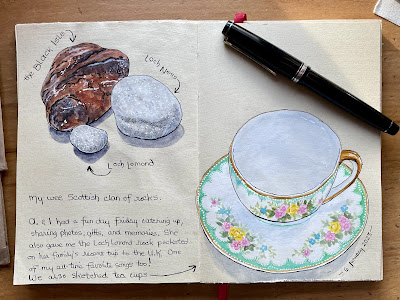 The Black Isle
Loch Ness
Loch Lomond
My wee Scottish clan of rocks.
& I had a fun day Friday catching up,
sharing photos, gifts, and memories. She
also gave me the Loch Lomond rock pocketed
on his family's recent trip to the U.K. One
of my all-time favorite songs too!
We also sketched tea cups